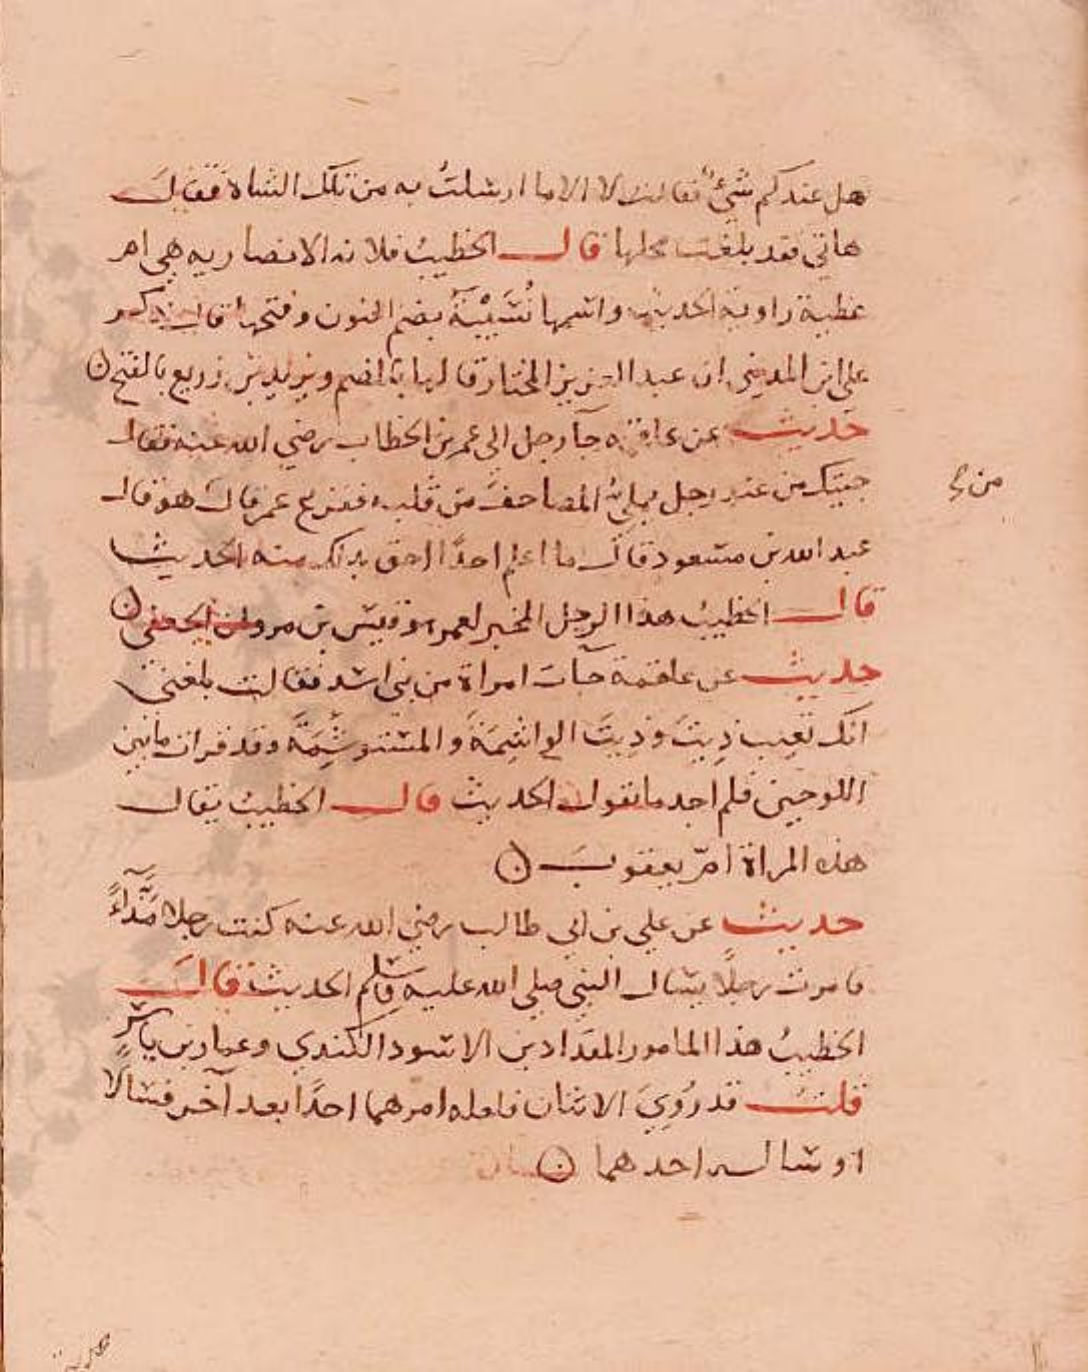 هل عندكم شيءٌ فقالت لا الا ما ارسلتُ به من تلك الشاة فقال
هاتي فقد بلغت محلها قال الخطيبُ فلانه الانصاريه هي ام
عطية راوية الحديث واسمها نُسَيْبَة بضم النون وفتحها قال
علي ابن المديني ان عبد العزيز المختار قالها بالضم ويزيد بن زريع بالفتح ن
حديث عن علقمه جآ رجل الى عمر بن الخطاب رضي الله عنه فقال
جيتك من عند رجل يملي المصاحف من قلبه ففزع عمر قال هو قال
من
عبد الله بن مسعود قال ما اعلم احدًا احق بذلك منه الحديث
قال الخطيبُ هذا الرجل المخبر لعمر هو قيس بن مروان الجعفي ن
حديث عن علقمة جآت امراة من بني اسد فقالت بلغني
انك تعيب ذيتَ وذيتَ الواشِمَةَ والمستوشِمَةَ وقد قرات ما بين
اللوحين فلم اجد ما تقول الحديث قال الخطيبُ يقال
هذه المراة امّ يعقوب ن
حديث عن علي بن ابي طالب رضي الله عنه كنت رجلا مَذَّآءً
فامرت رجلًا يسال النبي صلى الله عليه وسلم الحديث قال
الخطيبُ هذا المامور المقداد بن الاسود الكندي وعمار بن ياسر
قلتُ قد رُوِيَ الاثنان فلعله امرهما احدًا بعد آخر فسالا
او ساله احدهما ن